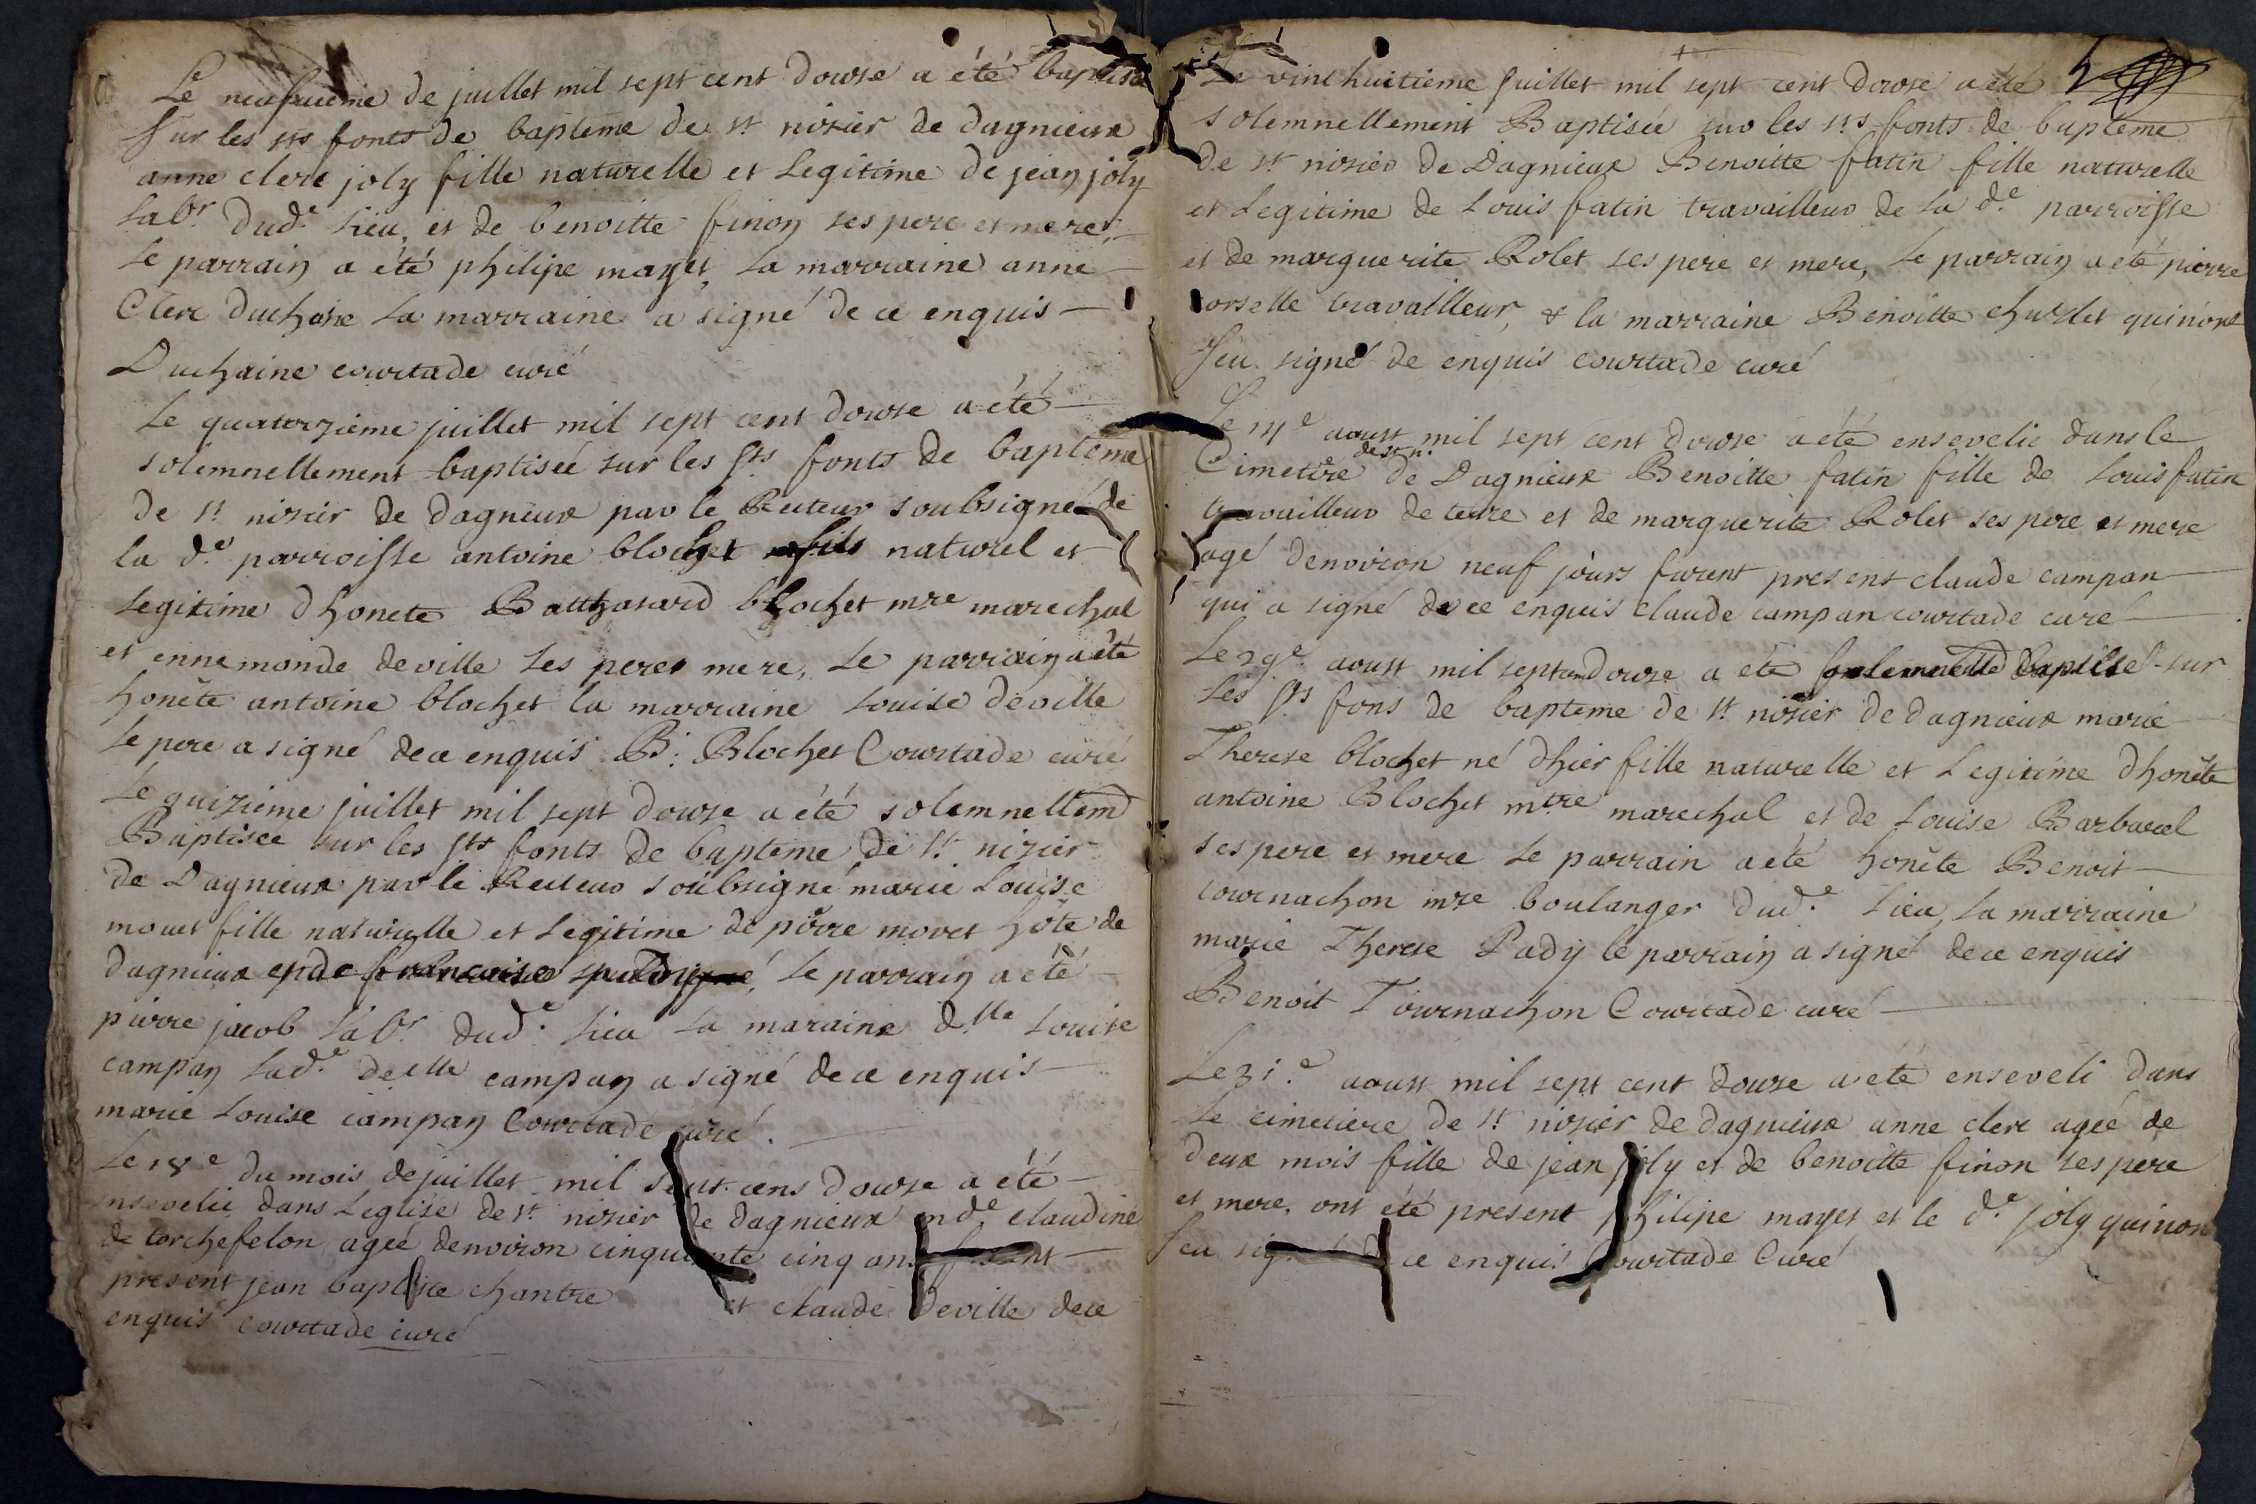 Le neufvieme de juillet mil sept cent douse a été baptisé
sur les sts fonts de bapteme de st nisier de dagnieux
anne clere joly fille naturelle et Legitime de jean joly
Labr dud.e Lieu, et de benoitte finon ses pere et mere,
Le parrain a été philipe mayet, La marraine anne
Clere duchaine La marraine a signé de ce enquis
Duchaine courtade curé
Le quatorzieme juillet mil sept cent douse a été
solemnellement baptiseé sur les sts fonts de bapteme
de st nisier de dagnieux par le Recteur soubsigné de
la d.e parroisse antoine blochet fils naturel et
Legitime dhonete Batthasard blochet mre marechal
et ennemonde deville ses pere mere, Le parrain a été
honête antoine blochet la marraine Louise deville
Le pere a signé de ce enquis B. Blochet Courtade curé
Le quizieme juillet mil sept douse a été solemnellemt
Baptisee sur les sts fonts de bapteme de st nisier
de Dagnieux par le Recteur soubsigné marie Louise
mouet fille naturelle et Legitime de pierre moret hôte de
dagnieux et de francoise Le parrain a été
pierre jacob Labr dud.e Lieu La maraine d.lle Louise
campan Lad.e delle campan a signé de ce enquis
marie Louise campan Courtade curé.
Le 18e du mois de juillet mil sept cens douse a été
ensevelie dans Leglise de st nisier de dagnieux mde claudine
de torchefelon ageé denviron cinquante cinq ans furent
present jean baptiste chantre et claude Deville de ce
enquis courtade curé
Le vint huitieme juillet mil sept cent douse a été
solemnellement Baptiseé sur les sts fonts de bapteme
de st nisier de Dagnieux Benoitte fatin fille naturelle
et Legitime de Louis fatin travailleur de La d.e parroisse
et de marguerite Rolet ses pere et mere, Le parrain a été pierre
orselle travailleur, & la marraine Benoitte charlet qui nont
sceu signé de enquis courtade curé
Le aoust mil sept cent douse a été ensevelie dans le
Cimetire de st n. de Dagnieux Benoitte fatin fille de Louis fatin
travailleur de terre et de marguerite Rolet ses pere et mere
agé denviron neuf jours furent present claude campan
qui a signé de ce enquis claude campan courtade curé
Le 29e aoust mil sept cen douse a été solemnelle baptisé sur
Les sts fons de bapteme de st nisier de dagnieux marie
Therese blochet né dhier fille naturelle et Legitime dhonête
antoine Blochet mtre marechal et de Louise Barbarel
ses pere et mere Le parrain a été honête Benoit
tournachon mre boulanger dud.e Lieu, La marraine
marie Therese Pady le parrain a signé de ce enquis
Benoit Tournachon Courtade curé
Le 31.e aoust mil sept cent douse a été enseveli dans
Le cimetiere de st nisier de dagnieux anne clere ageé de
deux mois fille de jean joly et de benoitte finon ses pere
et mere, ont été present philipe mayet et le d.e joly qui non
sceu signé de ce enquis Courtade Curé